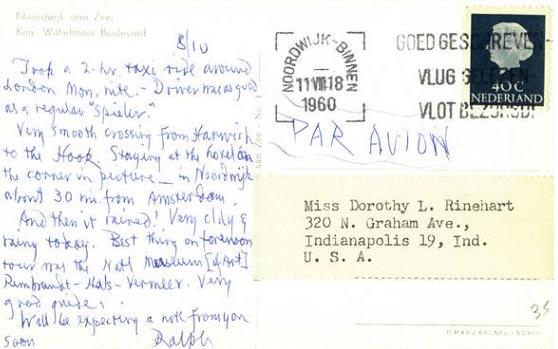 Noordwijk aan Zee,
Kon. Wilhelmina Boulevard
8/10
Took a 2-hr. taxi ride around
London Mon. nite. - Driver was as good
as a regular "spieler."
Very smooth crossing from Harwich
to the Hook. Staying at the hotel on
the corner in picture - in Noordwijk
about 30 mi. from Amsterdam.
And then it rained! Very cldy &
rainy today. Best thing on forenoon
tour was the Natl Museum [of Art]
Rembrandt - Hals - Vermeer. Very
good guide.
Will be expecting a note from you
soon Ralph
NOORDWIJK-BINNEN
11 VIII 18
1960
GOED GESCHREVEN-
VLUG GELEZEN-
VLOT BEZORGD!
40 C
NEDERLAND
PAR AVION
Miss Dorothy L. Rinehart
320 N. Graham Ave.,
Indianapolis 19, Ind.
U. S. A.
35